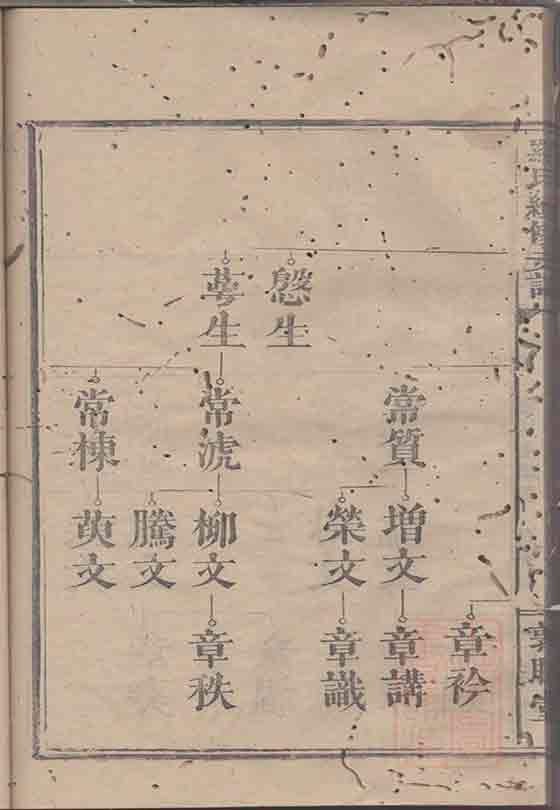 慇生
蕚生
常質
常淲
常棟
增文
榮文
柳文
騰文
萸文
章衿
章講
章識
章秩